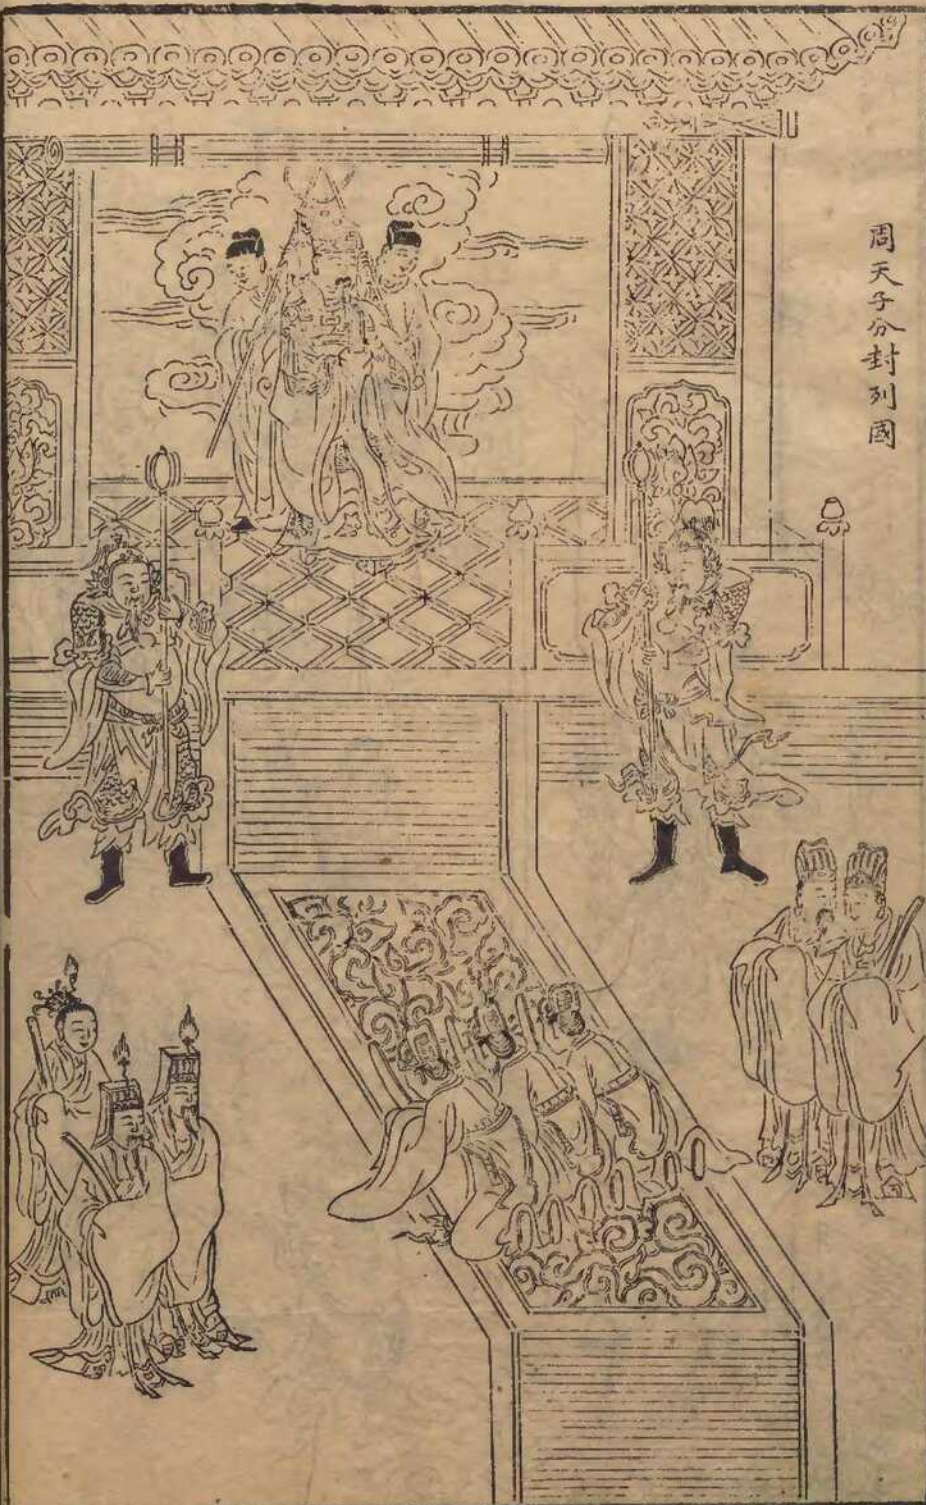 周天子分封列國